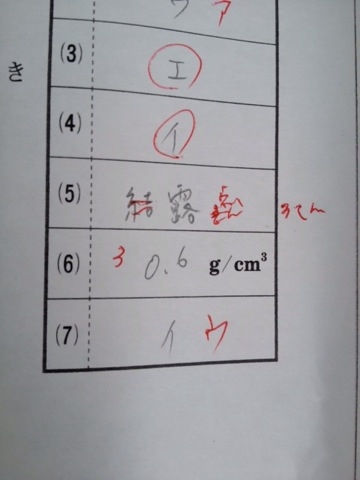 ウ ア
(3) エ
き
(4) イ
(5) 結露 点 ろてん
(6) 3 0.6 g/cm³
(7) イ ウ